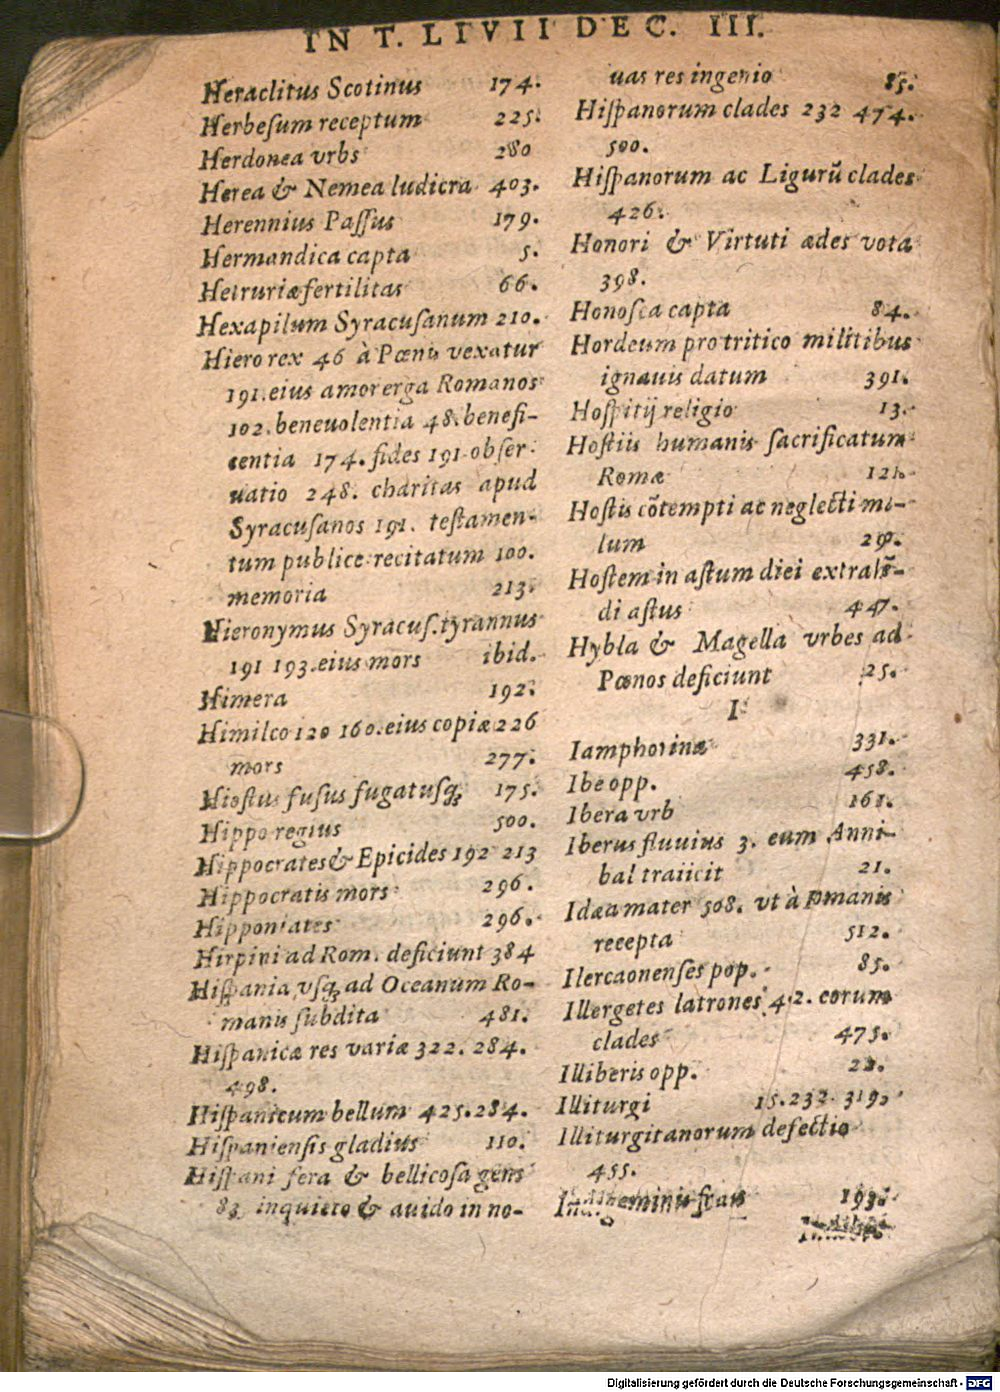 IN T. LIVII DEC. III.
Heraclitus Scotinus 174.
Herbeſum receptum 225.
Herdonea vrbs 280
Herea & Nemea ludicra 403.
Herennius Paſſus 179.
Hermandica capta 5.
Hetruriæ fertilitas 66.
Hexapilum Syracuſanum 210.
Hiero rex 46 à Pœnis vexatur
191. eius amor erga Romanos
102. beneuolentia 48. benefi-
centia 174. fides 191. obſer-
uatio 248. charitas apud
Syracuſanos 191. teſtamen-
tum publice recitatum 100.
memoria 213.
Hieronymus Syracuſ. tyrannus
191 193. eius mors ibid.
Himera 192.
Himilco 120 160. eius copiæ 226
mors 277.
Hioſtus fuſus fugatuſq; 175.
Hippo regius 500.
Hippocrates & Epicides 192 213
Hippocratis mors 296.
Hipponiates 296.
Hirpini ad Rom. deficiunt 384
Hiſpania vſq; ad Oceanum Ro-
manis ſubdita 481.
Hiſpanicæ res variæ 322. 284.
498.
Hiſpanicum bellum 425. 284.
Hiſpanienſis gladius 110.
Hiſpani fera & bellicoſa gens
83. inquieto & auido in no-
uas res ingenio 85.
Hiſpanorum clades 232 474.
500.
Hiſpanorum ac Ligurũ clades
426.
Honori & Virtuti ædes vota
398.
Honoſca capta 84.
Hordeum pro tritico militibus
ignauis datum 391.
Hoſpitij religio 13.
Hoſtiis humanis ſacrificatum
Romæ 121.
Hoſtis cõtempti ac neglecti ma-
lum
Hoſtem in aſtum diei extrahẽ-
di aſtus 447.
Hybla & Magella vrbes ad
Pœnos deficiunt 25.
I
Iamphorinæ 331.
Ibe opp. 458.
Ibera vrb 161.
Iberus fluuius 3. eum Anni-
bal traiicit 21.
Idæa mater 508. vt à Romanis
recepta 512.
Ilercaonenſes pop. 85.
Illergetes latrones 42. eorum
clades 475.
Illiberis opp. 22.
Illiturgi 15. 232. 319.
Illiturgitanorum defectio
455.
geminis fraus 193.